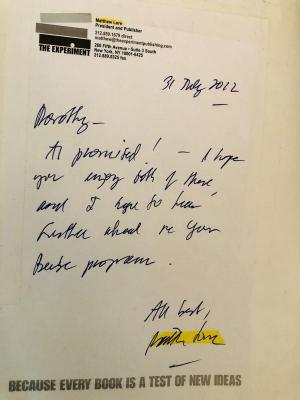 Matthew Lore
President and Publisher
212.889.1659 direct
matthew@theexperimentpublishing.com
260 Fifth Avenue • Suite 3 South
New York, NY 10001-6425
212.889.0325 fax
THE EXPERIMENT
31 July 2012
Dorothy –
As promised! – I hope
you enjoy both of these
and I hope to hear
further ahead re your
program.
All best,
Matthew Lore
BECAUSE EVERY BOOK IS A TEST OF NEW IDEAS